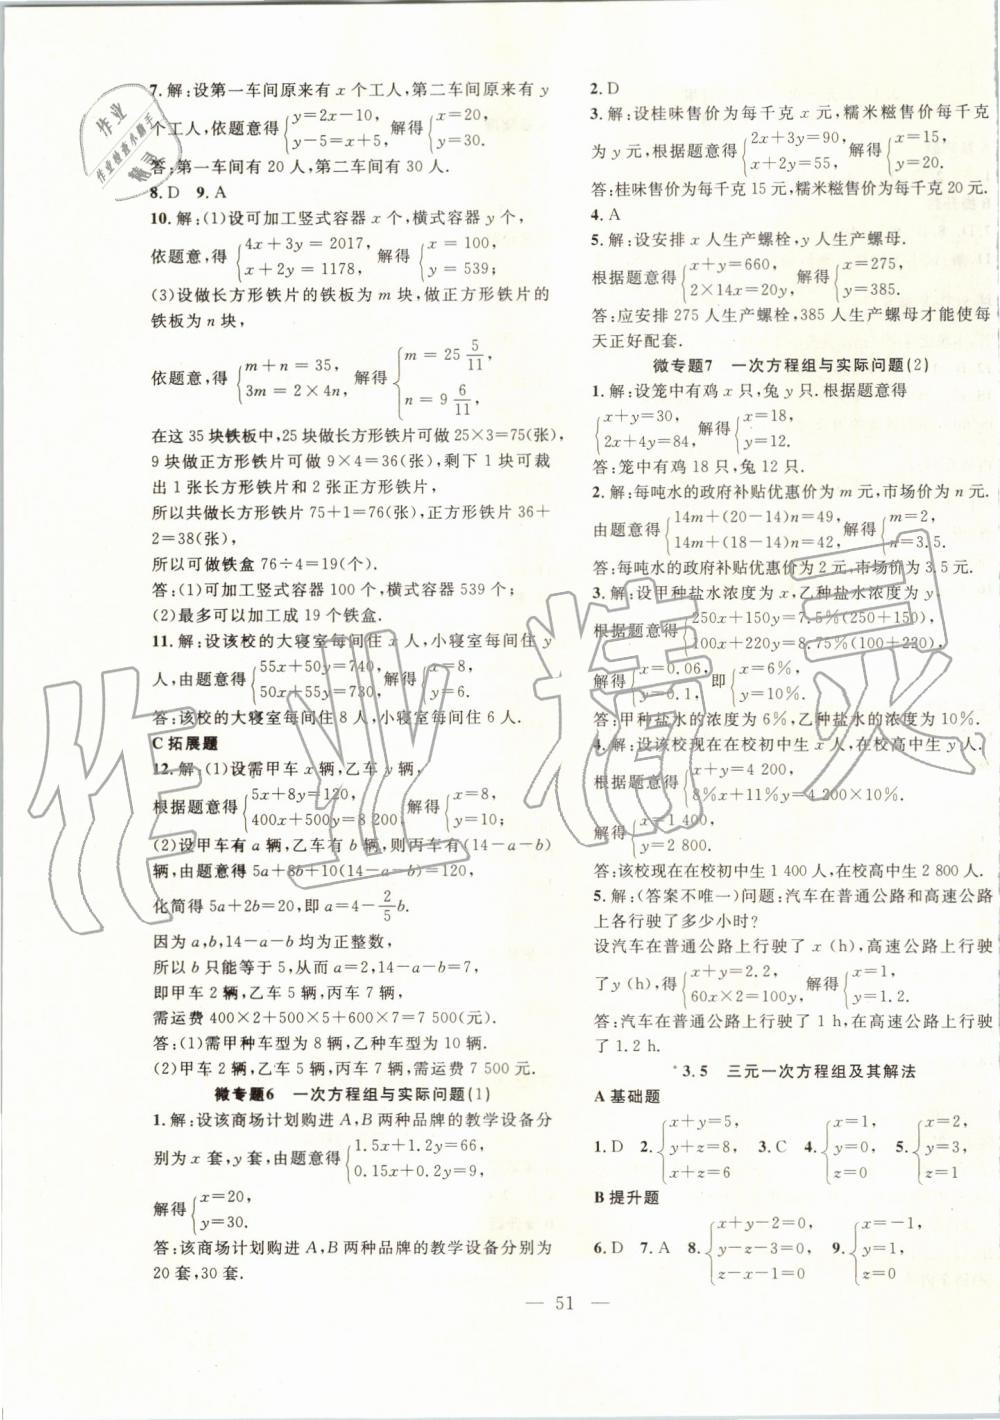 7.解:设第一车间原来有 x 个工人,第二车间原来有 y
个工人,依题意得{y=2x-10, y-5=x+5, 解得{x=20, y=30.
答:第一车间有 20 人,第二车间有 30 人.
8.D 9.A
10.解:(1)设可加工竖式容器 x 个,横式容器 y 个,
依题意,得{4x+3y=2017, x+2y=1178, 解得{x=100, y=539;
(3)设做长方形铁片的铁板为 m 块,做正方形铁片的
铁板为 n 块,
依题意,得{m+n=35, 3m=2×4n, 解得{m=25 5/11, n=9 6/11,
在这 35 块铁板中,25 块做长方形铁片可做 25×3=75(张),
9 块做正方形铁片可做 9×4=36(张),剩下 1 块可裁
出 1 张长方形铁片和 2 张正方形铁片,
所以共做长方形铁片 75+1=76(张),正方形铁片 36+
2=38(张),
所以可做铁盒 76÷4=19(个).
答:(1)可加工竖式容器 100 个,横式容器 539 个;
(2)最多可以加工成 19 个铁盒.
11.解:设该校的大寝室每间住 x 人,小寝室每间住 y
人,由题意得{55x+50y=740, 50x+55y=730, 解得{x=8, y=6.
答:该校的大寝室每间住 8 人,小寝室每间住 6 人.
C 拓展题
12.解:(1)设需甲车 x 辆,乙车 y 辆,
根据题意得{5x+8y=120, 400x+500y=8 200, 解得{x=8, y=10;
(2)设甲车有 a 辆,乙车有 b 辆,则丙车有(14-a-b)
辆,由题意得 5a+8b+10(14-a-b)=120,
化简得 5a+2b=20,即 a=4-2/5 b.
因为 a,b,14-a-b 均为正整数,
所以 b 只能等于 5,从而 a=2,14-a-b=7,
即甲车 2 辆,乙车 5 辆,丙车 7 辆,
需运费 400×2+500×5+600×7=7 500(元).
答:(1)需甲种车型为 8 辆,乙种车型为 10 辆.
(2)甲车 2 辆,乙车 5 辆,丙车 7 辆,需运费 7 500 元.
微专题6 一次方程组与实际问题(1)
1.解:设该商场计划购进 A,B 两种品牌的教学设备分
别为 x 套,y 套,由题意得{1.5x+1.2y=66, 0.15x+0.2y=9,
解得{x=20, y=30.
答:该商场计划购进 A,B 两种品牌的教学设备分别为
20 套,30 套.
2.D
3.解:设桂味售价为每千克 x 元,糯米糍售价为每千克
为 y 元,根据题意得{2x+3y=90, x+2y=55, 解得{x=15, y=20.
答:桂味售价为每千克 15 元,糯米糍售价为每千克 20 元.
4.A
5.解:设安排 x 人生产螺栓,y 人生产螺母.
根据题意得{x+y=660, 2×14x=20y, 解得{x=275, y=385.
答:应安排 275 人生产螺栓,385 人生产螺母才能使每
天正好配套.
微专题7 一次方程组与实际问题(2)
1.解:设笼中有鸡 x 只,兔 y 只.根据题意得
{x+y=30, 2x+4y=84, 解得{x=18, y=12.
答:笼中有鸡 18 只,兔 12 只.
2.解:每吨水的政府补贴优惠价为 m 元,市场价为 n 元.
由题意得{14m+(20-14)n=49, 14m+(18-14)n=42, 解得{m=2, n=3.5.
答:每吨水的政府补贴优惠价为 2 元,市场价为 3.5 元.
3.解:设甲种盐水浓度为 x,乙种盐水浓度为 y.
根据题意得{250x+150y=7.5%(250+150), 100x+220y=8.75%(100+220),
解得{x=0.06, y=0.1, 即{x=6%, y=10%.
答:甲种盐水的浓度为 6%,乙种盐水的浓度为 10%.
4.解:设该校现在在校初中生 x 人,在校高中生 y 人.
根据题意得{x+y=4 200, 8%x+11%y=4 200×10%.
解得{x=1 400, y=2 800.
答:该校现在在校初中生 1 400 人,在校高中生 2 800 人.
5.解:(答案不唯一)问题:汽车在普通公路和高速公路
上各行驶了多少小时?
设汽车在普通公路上行驶了 x (h),高速公路上行驶
了 y (h),根据题意得{x+y=2.2, 60x×2=100y, 解得{x=1, y=1.2.
答:汽车在普通公路上行驶了 1 h,在高速公路上行驶
了 1.2 h.
*3.5 三元一次方程组及其解法
A 基础题
1.D 2.{x+y=5, y+z=8, x+z=6 3.C 4.{x=1, y=1, z=0 5.{x=2, y=3, z=1
B 提升题
6.D 7.A 8.{x+y-2=0, y-z-3=0, z-x-1=0 9.{x=-1, y=1, z=0
— 51 —
作业
作业检查小助手
精灵
作业精灵